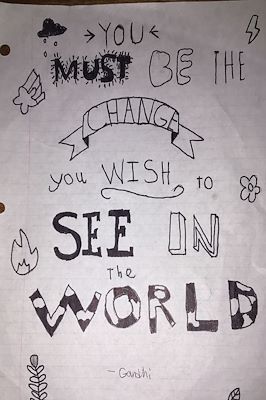 YOU
MUST BE THE
CHANGA
you WISH to
SEE IN
The
WORLD
- Gandhi